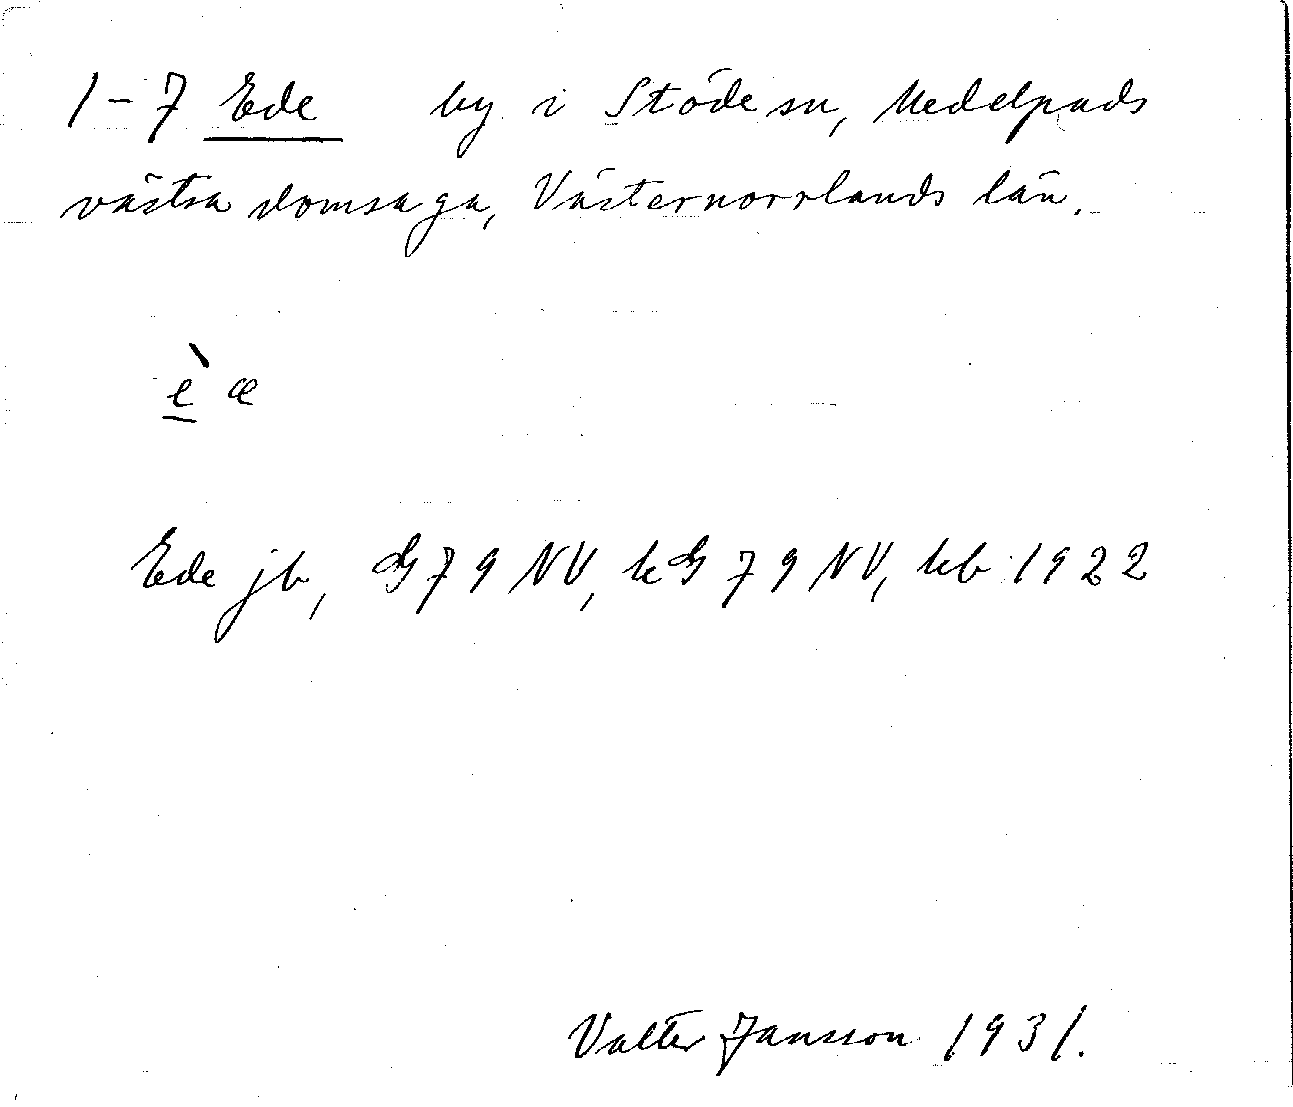 1-7 Ede by i Stöde sn, Medelpads
västra domsaga, Västernorrlands län.
è æ
Ede jb, G 79 NV, kG 79 NV, kb 1922
Valter Jansson 1931.